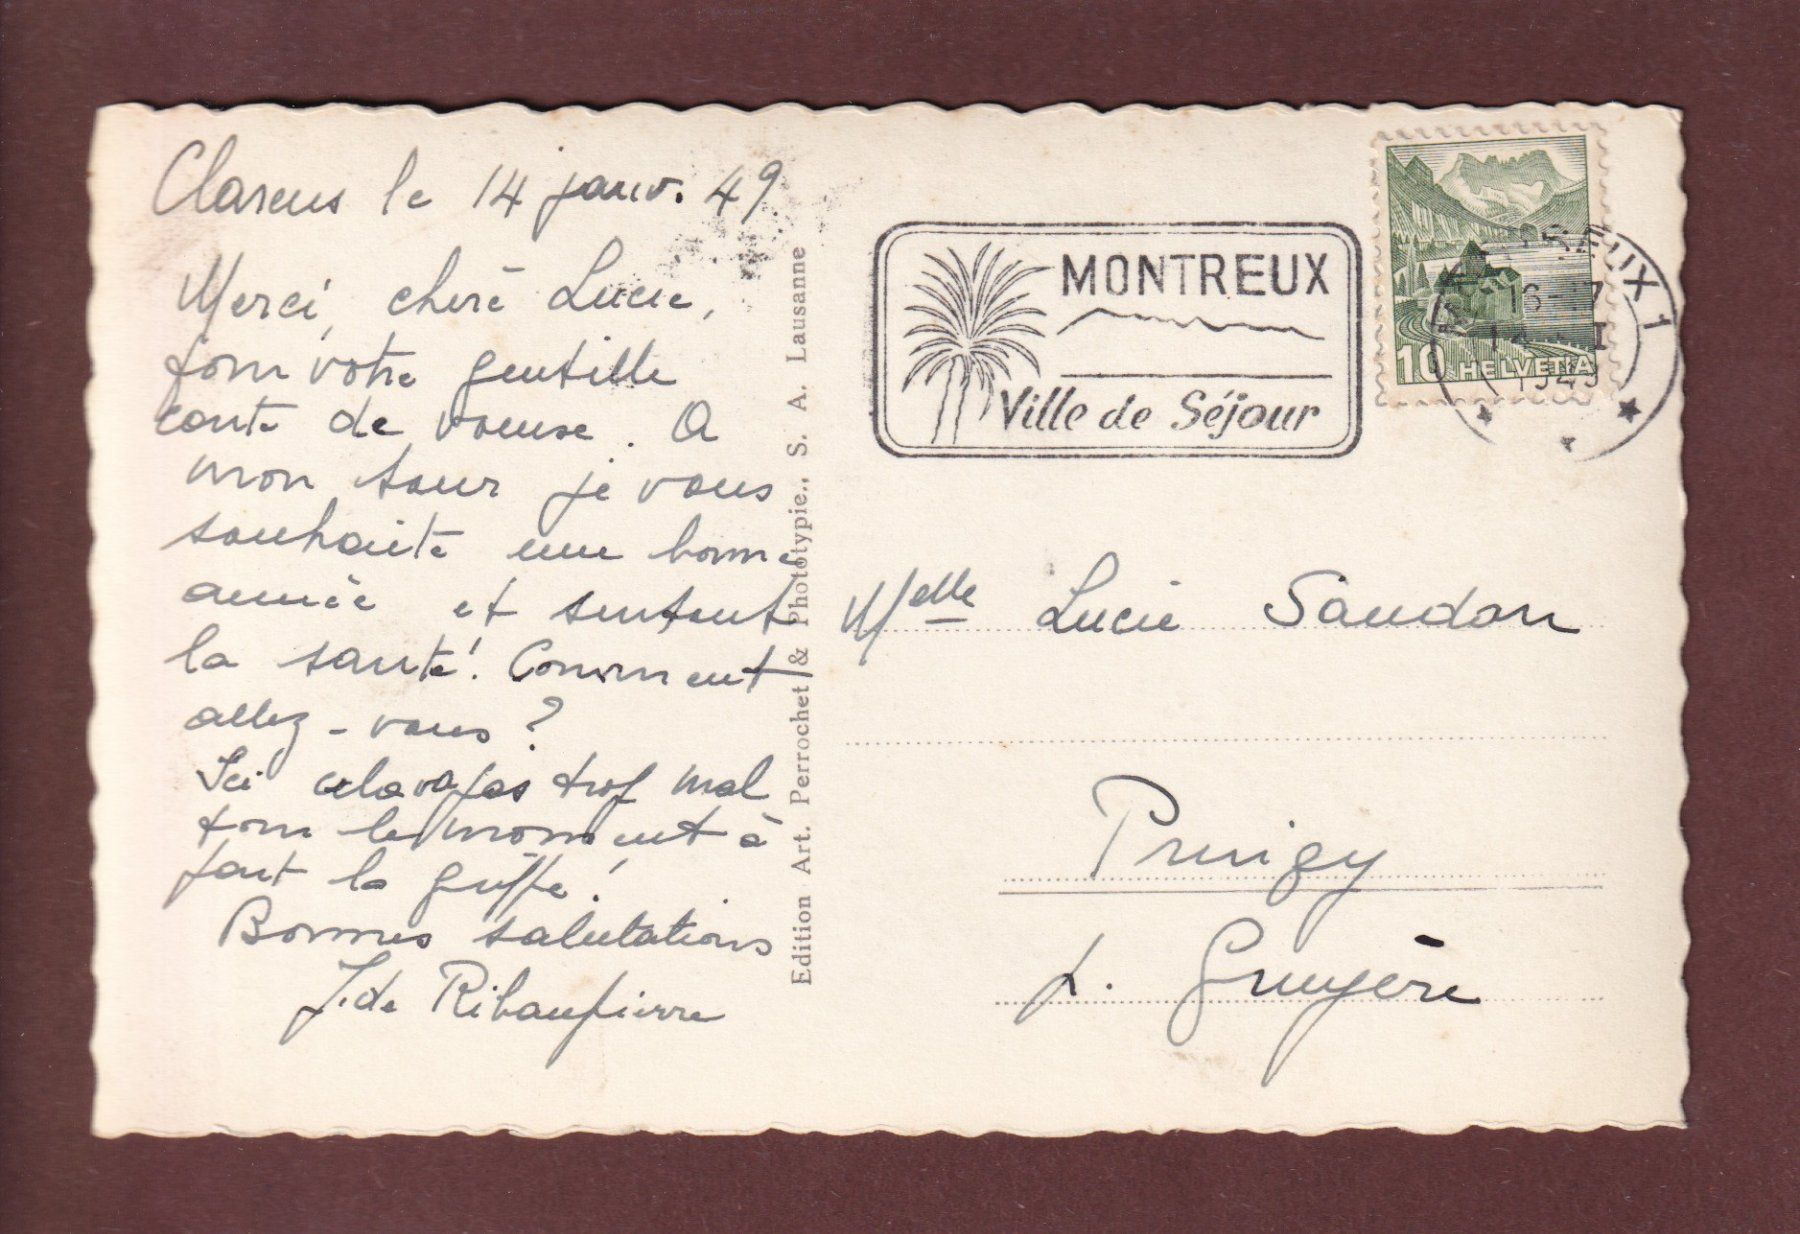 Clarens le 14 janv. 49
Merci, chère Lucie,
pour votre gentille
carte de voeuse. A
mon tour je vous
souhaite une bonne
année et surtout
la santé! Comment
allez-vous?
Ici cela va pas trop mal
pour le moment à
part la grippe!
Bonnes salutations
J. de Ribaupierre
Edition Art. Perrochet & Phototypie., S. A. Lausanne
MONTREUX
Ville de Séjour
MONTREUX 1
1949
10 HELVETIA
Melle Lucie Saudan
Pringy
p. Gruyère